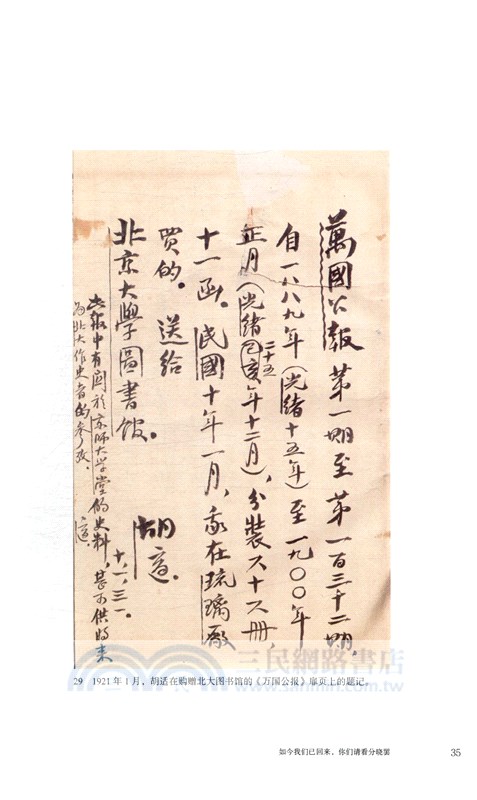 萬國公報 第一期至第一百三十二期.
自一八八九年(光緒十五年)至一九〇〇年
正月(光緒二十五己亥年十二月),分裝六十六冊,
十一函。民國十年一月,我在琉璃廠
買的。送給
北京大學圖書館。
胡適.
十,一,三一.
此報中有關於京師大學堂的史料,甚可供將來
為北大作史者的參攷. 適.
三民網路書店
www.sanmin.com.tw
29 1921年1月,胡适在购赠北大图书馆的《万国公报》扉页上的题记。
如今我们已回来,你们请看分晓罢 35